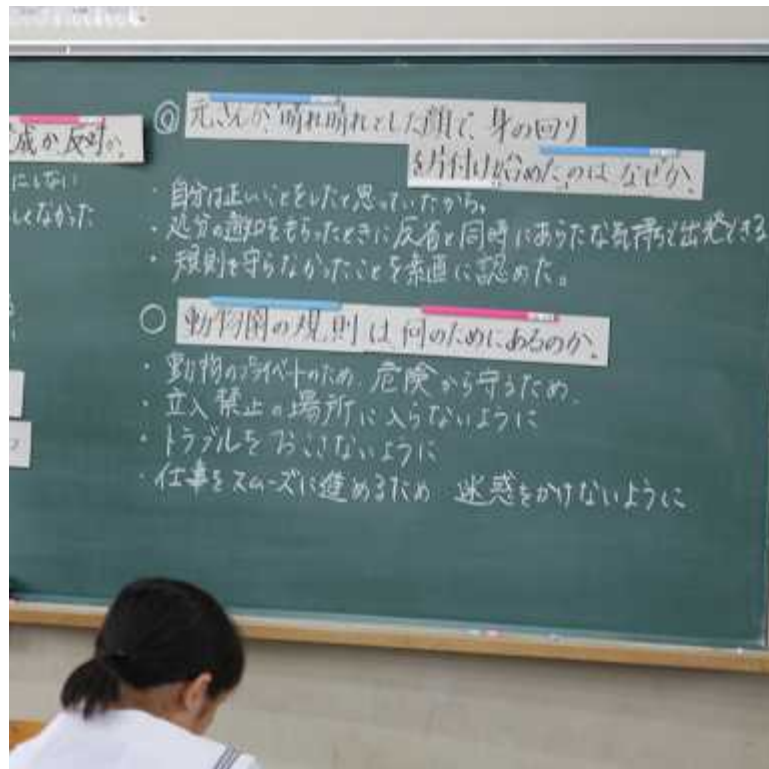 成か反対か。
にしない
しくなかった
◎ 元さんが、晴れ晴れとした顔で、身の回り
を片付け始めたのは なぜか。
・自分は正しいことをしたと思っていたから。
・処分の通知をもらったときに反省と同時にあらたな気持ちで出発できる
・規則を守らなかったことを素直に認めた。
○ 動物園の規則は何のためにあるのか。
・動物のプライベートのため、危険から守るため、
・立入禁止の場所に入らないように
・トラブルをおこさないように
・仕事をスムーズに進めるため 迷惑をかけないように